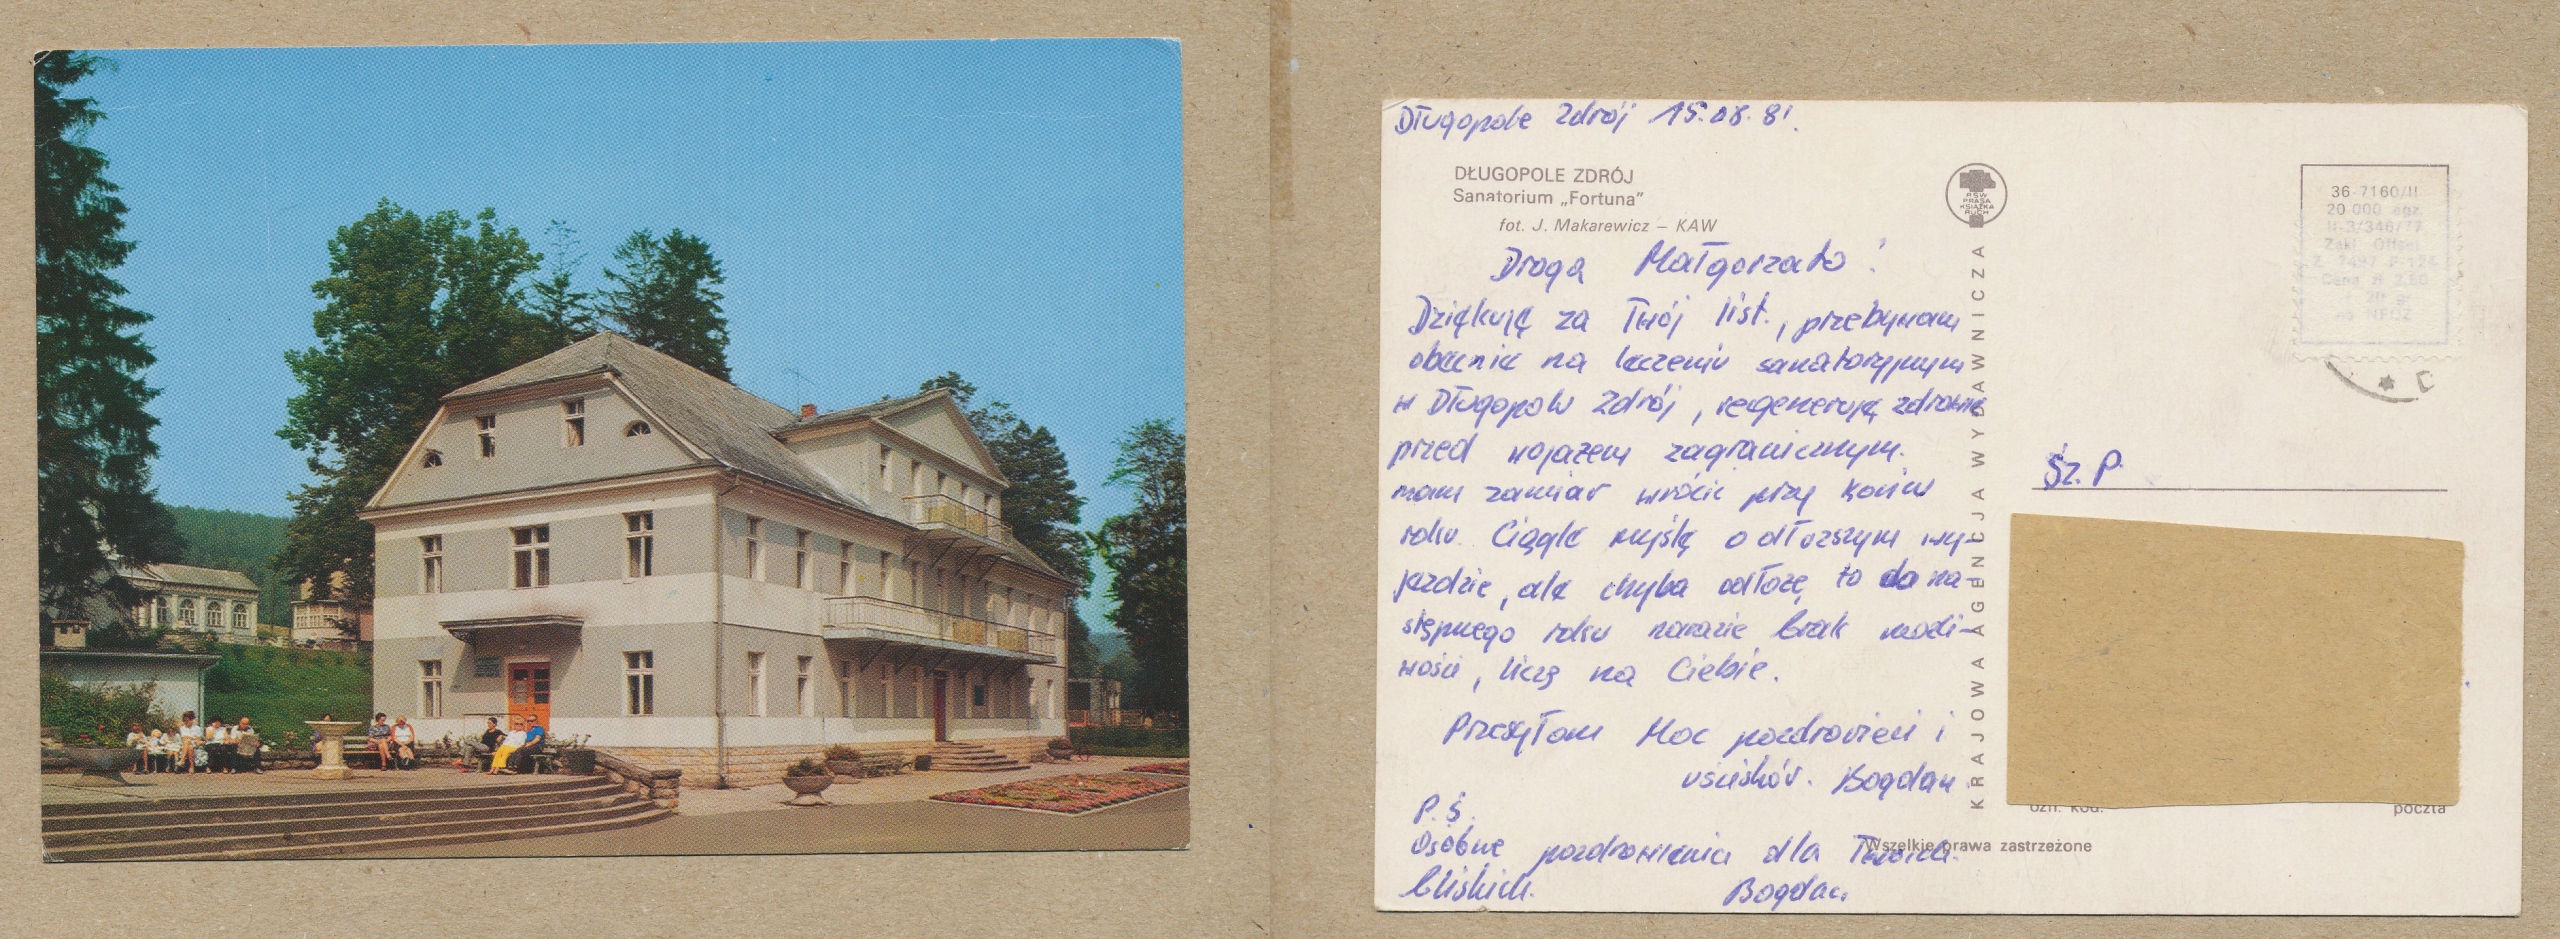 Długopole Zdrój 15.08.81.
DŁUGOPOLE ZDRÓJ
Sanatorium „Fortuna”
fot. J. Makarewicz – KAW
Drogą Małgorzato!
Dziękuję za Twój list., przebywam
obecnie na leczeniu sanatoryjnym
w Długopolu Zdrój, regeneruję zdrowie
przed wojażem zagranicznym.
mam zamiar wrócić przy końcu
roku. Ciągle myślę o dłuższym wy-
jeździe, ale chyba odłożę to do na-
stępnego roku narazie brak możli-
wości, liczę na Ciebie.
Przesyłam Moc pozdrowień i
uścisków. Bogdan
P.S.
Osobne pozdrowienia dla Twoich
bliskich. Bogdan
RSW
PRASA
KSIĄŻKA
RUCH
KRAJOWA AGENCJA WYDAWNICZA
36-7160/II
20 000 egz.
II-3/346/77
Zakł. Offset.
Cena zł 2,80
Sz. P.
ozn. kod. poczta
Wszelkie prawa zastrzeżone